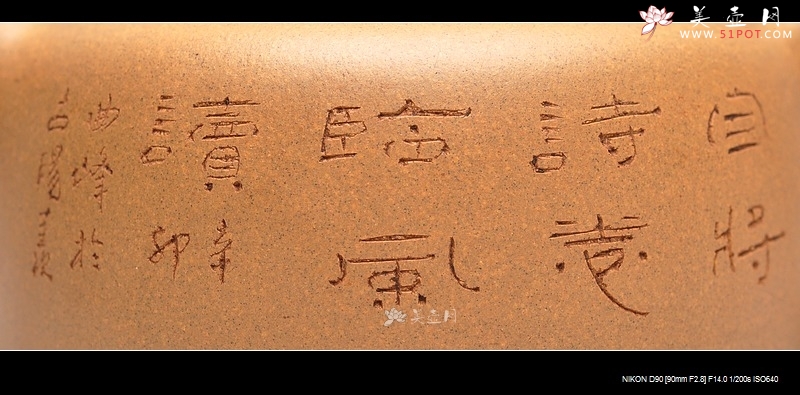 美壶网
WWW.51POT.COM
自將
詩卷
臨風
讀
辛卯
曲峰於
古陽羨
美壶网
NIKON D90 [90mm F2.8] F14.0 1/200s ISO640